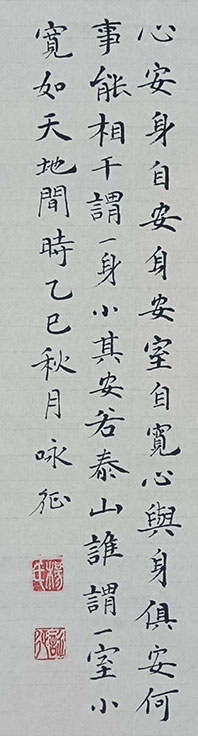 心安身自安身安室自寬心與身俱安何
事能相干謂一身小其安若泰山誰謂一室小
寬如天地間時乙巳秋月咏征